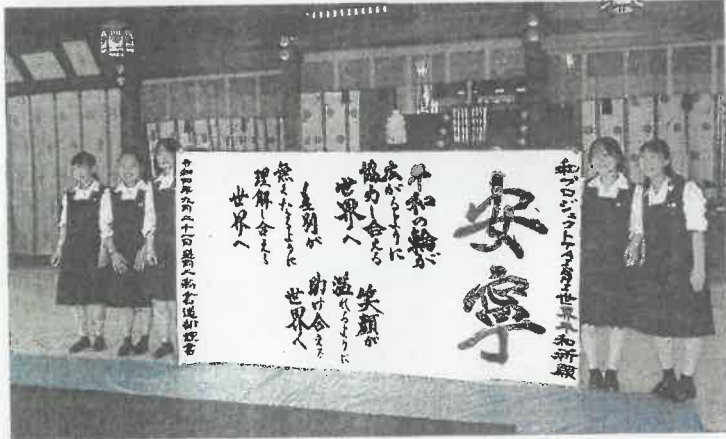 和プロジェクトTAISHI世界平和祈願
安寧
平和の輪が
広がるように
協力し合える
世界へ
笑顔が
溢れるように
助け合える
世界へ
差別が
無くなるように
理解し合える
世界へ
令和四年九月二十一日 書道部謹書